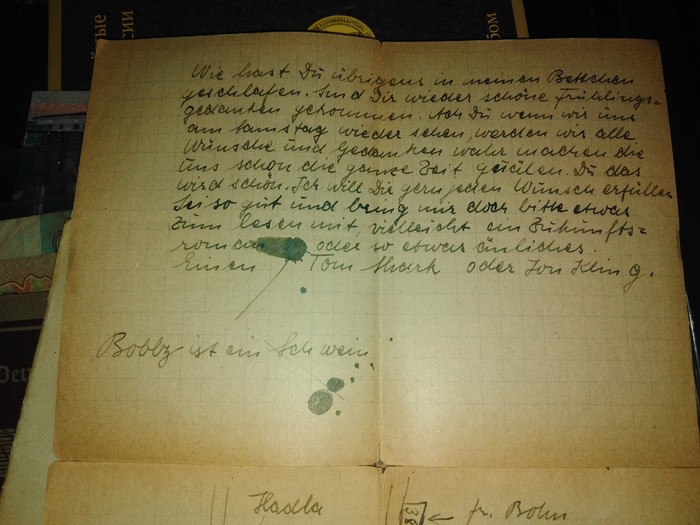 ые
сии
бом
Wie hast Du übrigens in meinen Bettchen
geschlafen. Sind Dir wieder schöne Frühlings=
gedanken gekommen. Ach Du wenn wir uns
am Samstag wieder sehen, werden wir alle
Wünsche und Gedanken wahr machen die
uns schon die ganze Zeit quälen. Du das
wird schön. Ich will Dir gern jeden Wunsch erfüllen
Sei so gut und bring mir doch bitte etwas
zum lesen mit, vielleicht ein Zukunfts=
roman oder so etwas änliches.
Einen Tom Shark oder Jon Kling.
Bobby ist ein Schwein
Deu
Hadla
38 ← fr. Bohn